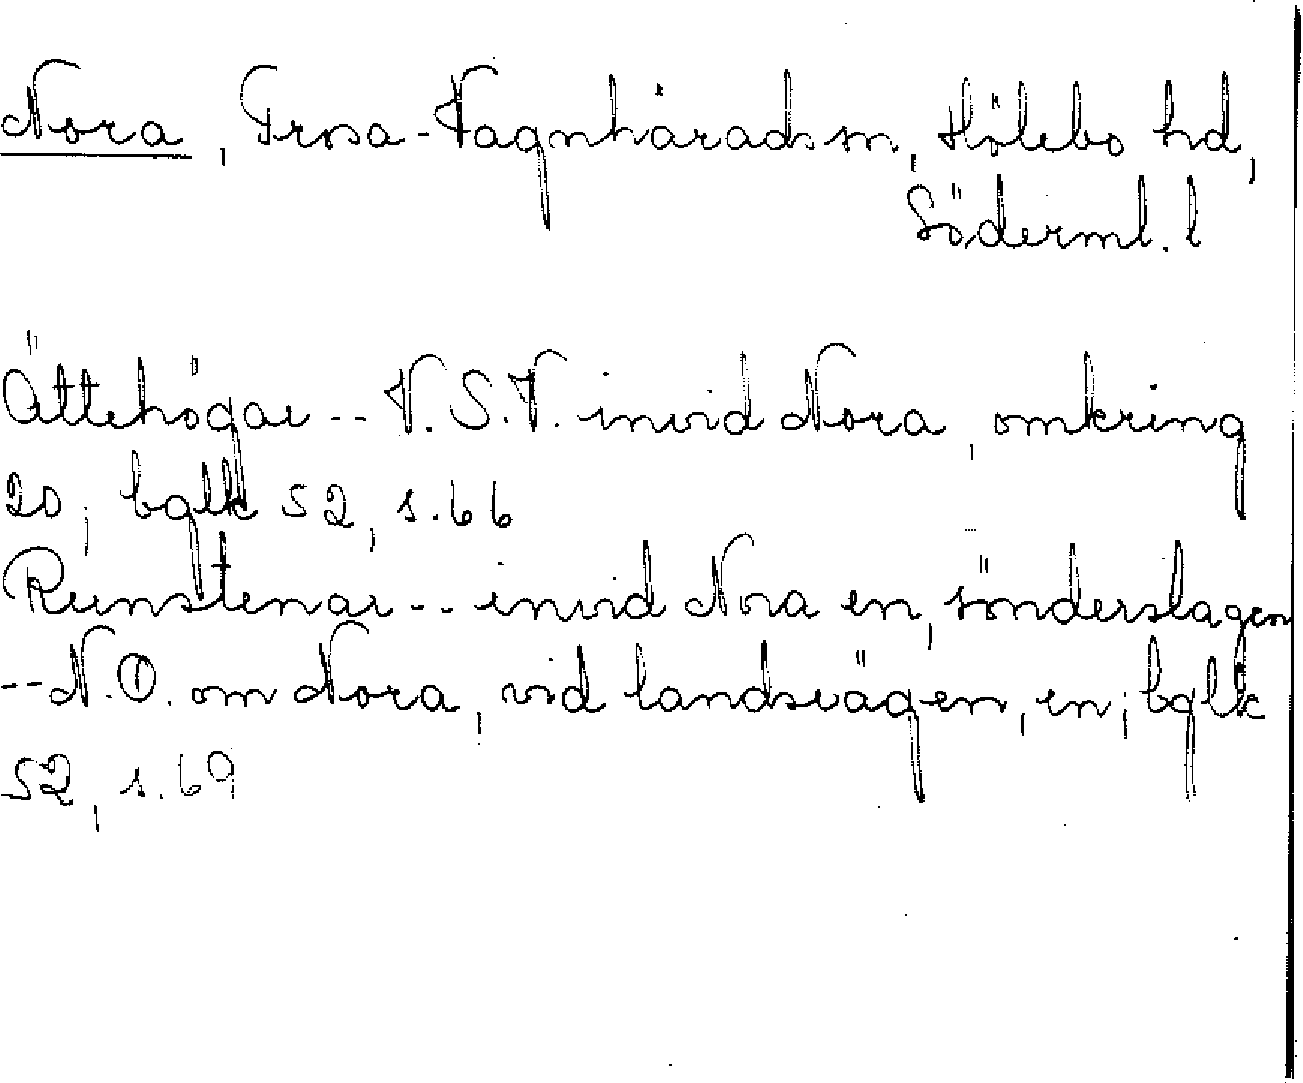 Nora, Trosa-Vagnhärads sn, Hölebo hd,
Söderml. l
Ättehögar -- V.S.V. invid Nora, omkring
20; bglk 52, s. 66
Runstenar -- invid Nora en, sönderslagen
-- N.O. om Nora, vid landsvägen, en; bglk
52, s. 69